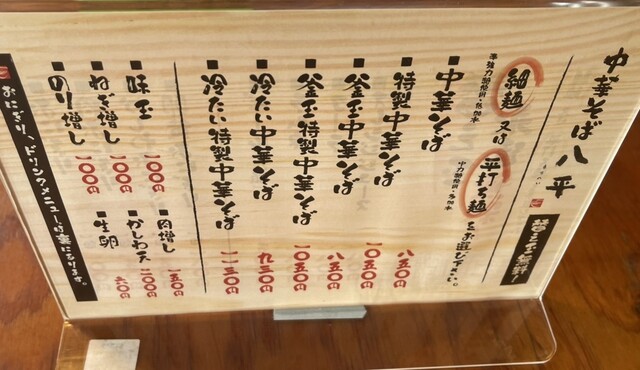 中華そば 八平
替え玉無料！
細麺 又は 平打ち麺 をお選び下さい。
■中華そば 八五〇円
■特製中華そば 一〇五〇円
■釜玉中華そば 八五〇円
■釜玉特製中華そば 一〇五〇円
■冷たい中華そば 九三〇円
■冷たい特製中華そば 一一三〇円
■味玉 一〇〇円
■ねぎ増し 一〇〇円
■のり増し 一〇〇円
■肉増し 一五〇円
■かしわ天
■生卵
おにぎり、ドリンクメニューは裏になります。